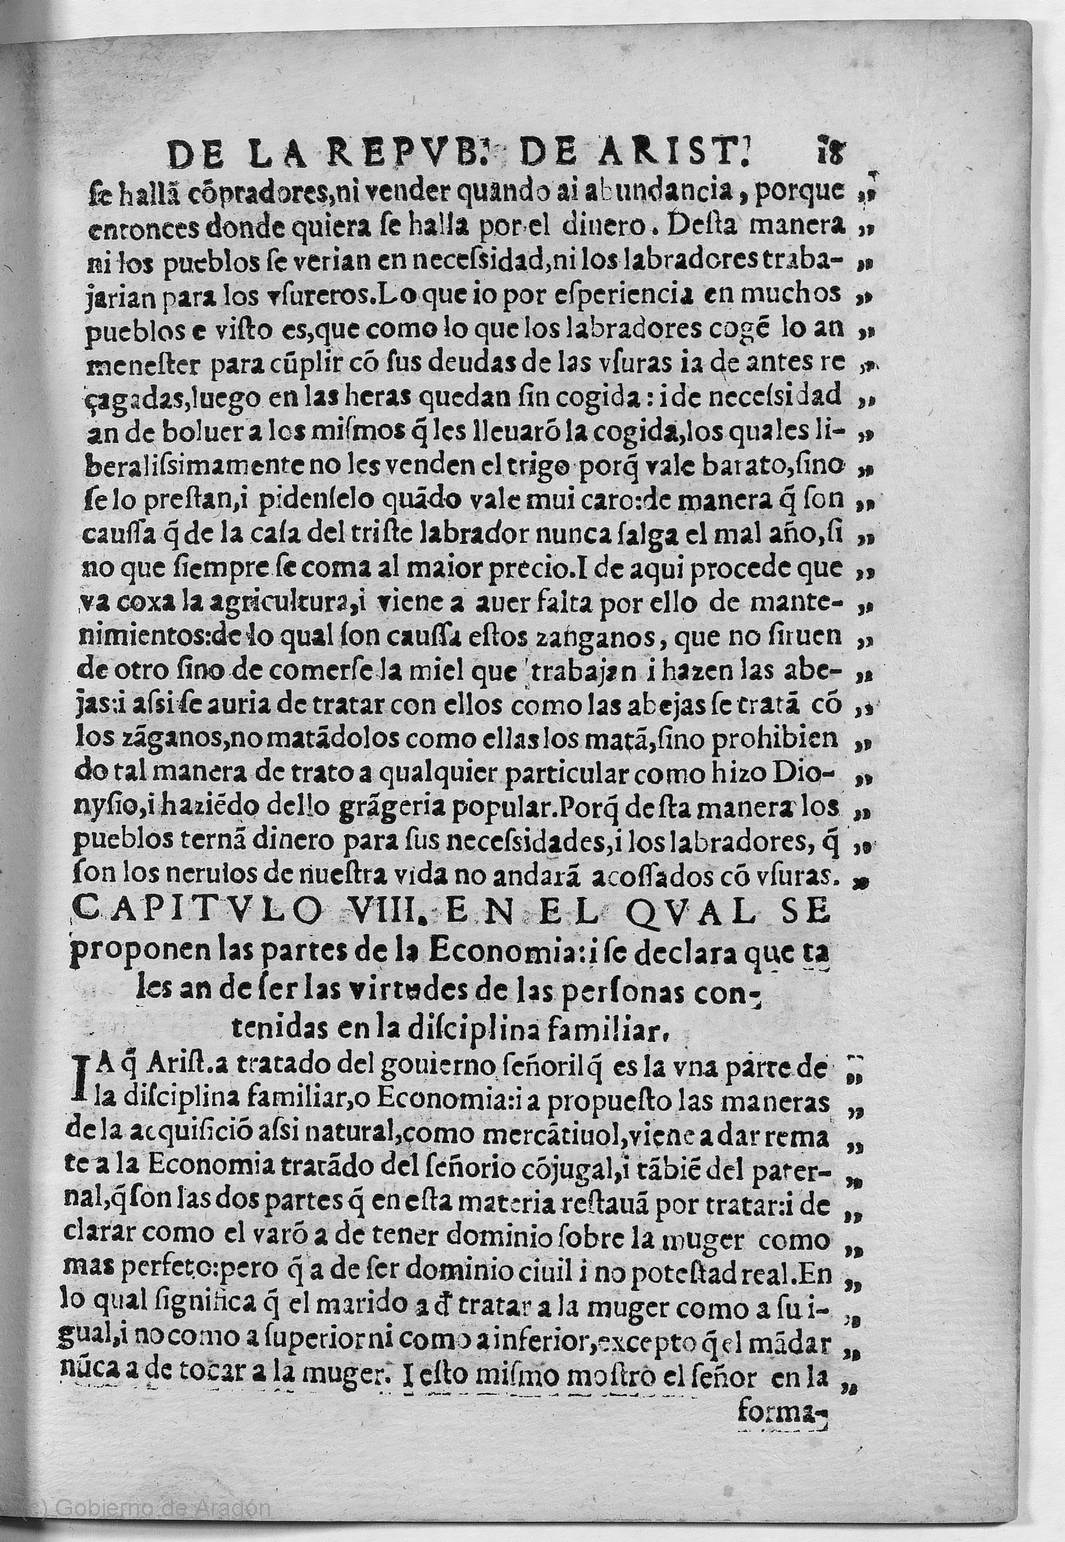 DE LA REPVB. DE ARIST. 18
ſe hallã cõpradores,ni vender quando ai abundancia, porque „
entonces donde quiera ſe halla por el dinero. Deſta manera „
ni los pueblos ſe verian en neceſsidad,ni los labradores traba- „
jarian para los vſureros.Lo que io por eſperiencia en muchos „
pueblos e viſto es,que como lo que los labradores cogẽ lo an „
meneſter para cũplir cõ ſus deudas de las vſuras ia de antes re „
çagadas,luego en las heras quedan ſin cogida: i de neceſsidad „
an de boluer a los miſmos q̃ les lleuarõ la cogida,los quales li- „
beraliſsimamente no les venden el trigo porq̃ vale barato,ſino „
ſe lo preſtan,i pidenſelo quãdo vale mui caro:de manera q̃ ſon „
cauſſa q̃ de la caſa del triſte labrador nunca ſalga el mal año,ſi „
no que ſiempre ſe coma al maior precio.I de aqui procede que „
va coxa la agricultura,i viene a auer falta por ello de mante- „
nimientos:de lo qual ſon cauſſa eſtos zanganos, que no ſiruen „
de otro ſino de comerſe la miel que trabajan i hazen las abe- „
jas:i aſsi ſe auria de tratar con ellos como las abejas ſe tratã cõ „
los zãganos,no matãdolos como ellas los matã,ſino prohibien „
do tal manera de trato a qualquier particular como hizo Dio- „
nyſio,i haziẽdo dello grãgeria popular.Porq̃ deſta manera los „
pueblos ternã dinero para ſus neceſsidades,i los labradores, q̃ „
ſon los neruios de nueſtra vida no andarã acoſſados cõ vſuras. „
CAPITVLO VIII. EN EL QVAL SE
proponen las partes de la Economia:i ſe declara que ta
les an de ſer las virtudes de las perſonas con-
tenidas en la diſciplina familiar.
IA q̃ Ariſt.a tratado del gouierno ſeñoril q̃ es la vna parte de „
la diſciplina familiar,o Economia:i a propueſto las maneras „
de la acquiſiciõ aſsi natural,como mercãtiuol,viene a dar rema „
te a la Economia tratãdo del ſeñorio cõjugal,i tãbiẽ del pater- „
nal,q̃ ſon las dos partes q̃ en eſta materia reſtauã por tratar:i de „
clarar como el varõ a de tener dominio ſobre la muger como „
mas perfeto:pero q̃ a de ſer dominio ciuil i no poteſtad real.En „
lo qual ſignifica q̃ el marido a đ tratar a la muger como a ſu i- „
gual,i no como a ſuperior ni como a inferior,excepto q̃ el mãdar „
nũca a de tocar a la muger. I eſto miſmo moſtro el ſeñor en la „
forma-
(c) Gobierno de Aragón